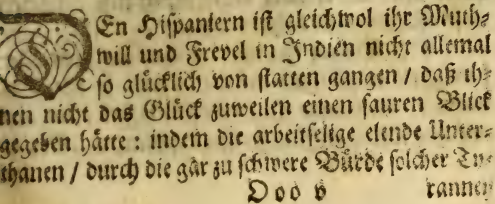 DEn Hiſpaniern iſt gleichwol ihr Muth⸗
will und Frevel in Indien nicht allemal
ſo glücklich von ſtatten gangen / daß ih⸗
nen nicht das Glück zuweilen einen ſauren Blick
gegeben hätte : indem die arbeitſelige elende Unter⸗
thanen / durch die gar zu ſchwere Bürde ſolcher Ty⸗
Ooo v ranney